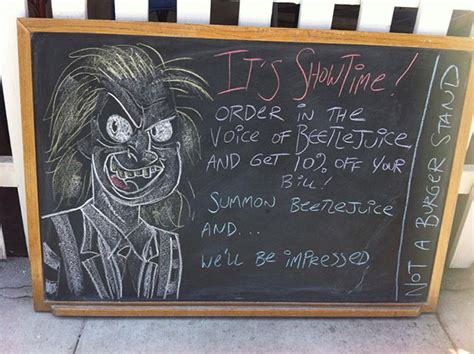 It's ShowTime!
ORDER IN THE
VOICE OF BEETLEJUICE
AND GET 10% OFF YOUR
Bill!
SUMMON BEETLEJUICE
AND...
WE'LL BE IMPRESSED
NOT A BURGER STAND